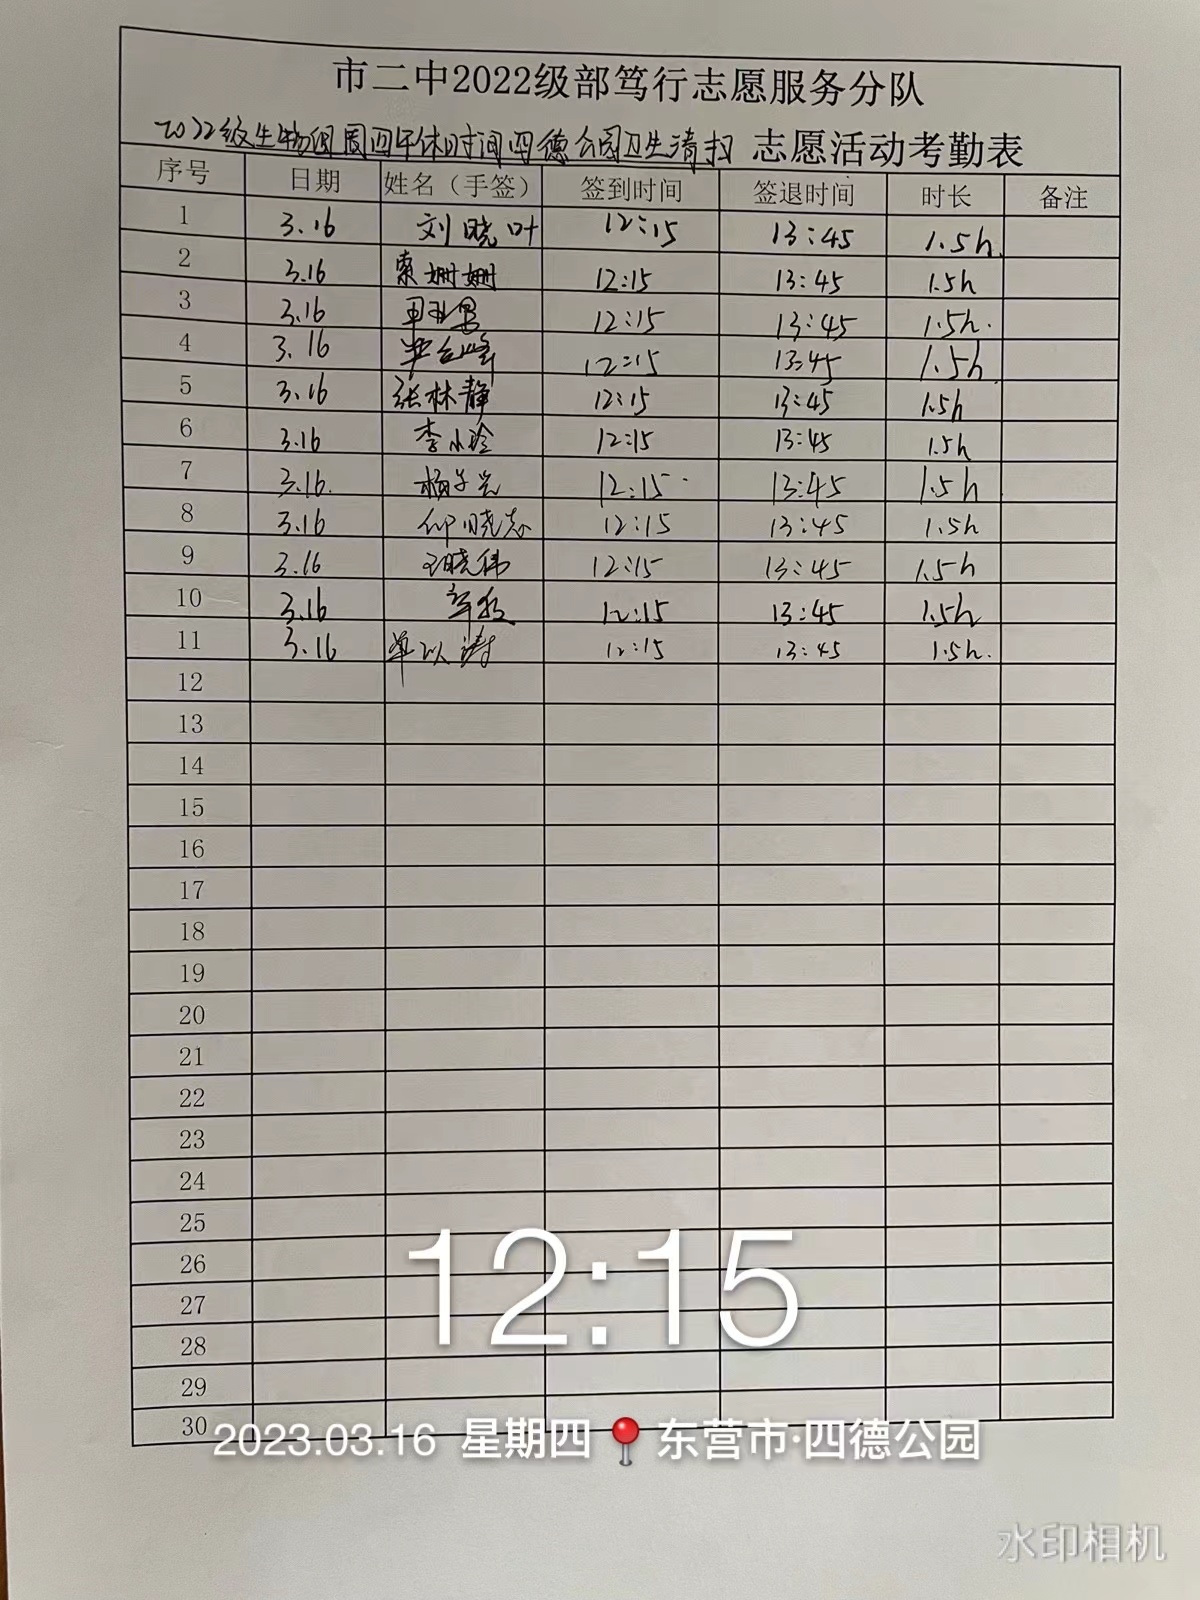 市二中2022级部笃行志愿服务分队
2022级生物组周四午休时间四德公园卫生清扫 志愿活动考勤表
序号 日期 姓名（手签） 签到时间 签退时间 时长 备注
1 3.16 刘晓叶 12:15 13:45 1.5h.
2 3.16 索姗姗 12:15 13:45 1.5h
3 3.16 12:15 13:45 1.5h.
4 3.16 12:15 13:45 1.5h.
5 3.16 张林静 12:15 13:45 1.5h
6 3.16 李小玲 12:15 13:45 1.5h
7 3.16. 12:15 13:45 1.5h
8 3.16 12:15 13:45 1.5h
9 3.16 王晓伟 12:15 13:45 1.5h
10 3.16 12:15 13:45 1.5h
11 3.16 单以涛 12:15 13:45 1.5h.
12
13
14
15
16
17
18
19
20
21
22
23
24
25
26
27
28
29
30
12:15
2023.03.16 星期四 东营市·四德公园
水印相机